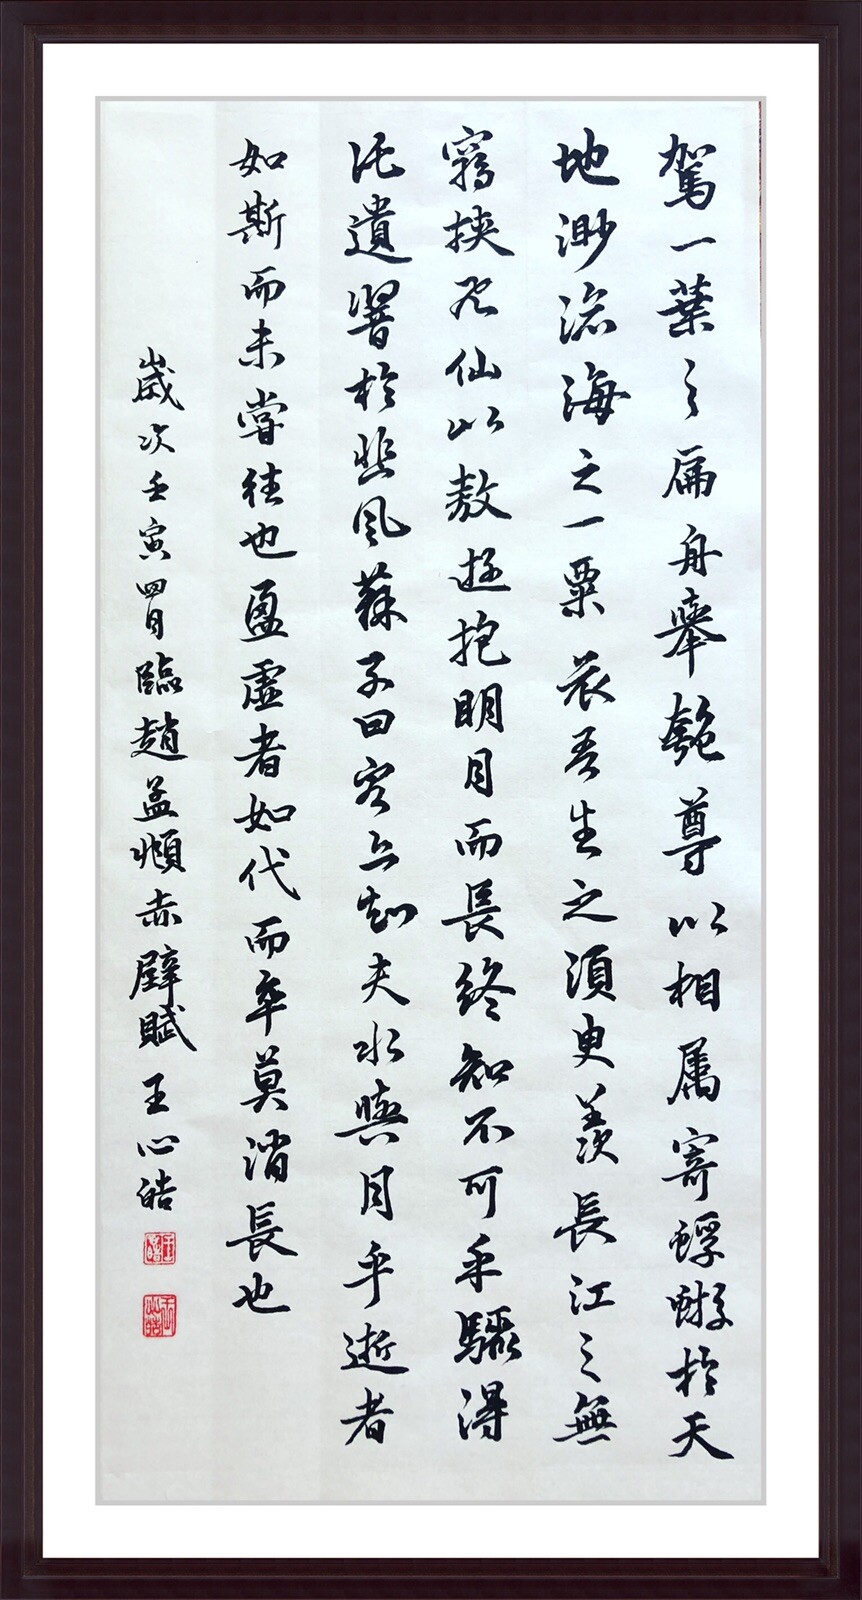 駕一葉之扁舟舉匏尊以相属寄蜉蝣於天
地渺滄海之一粟哀吾生之須臾羨長江之無
窮挾飛仙以敖遊抱明月而長終知不可乎驟得
託遺響於悲風蘇子曰客亦知夫水與月乎逝者
如斯而未嘗往也盈虛者如代而卒莫消長也
歲次壬寅四月臨趙孟頫赤壁賦王心皓